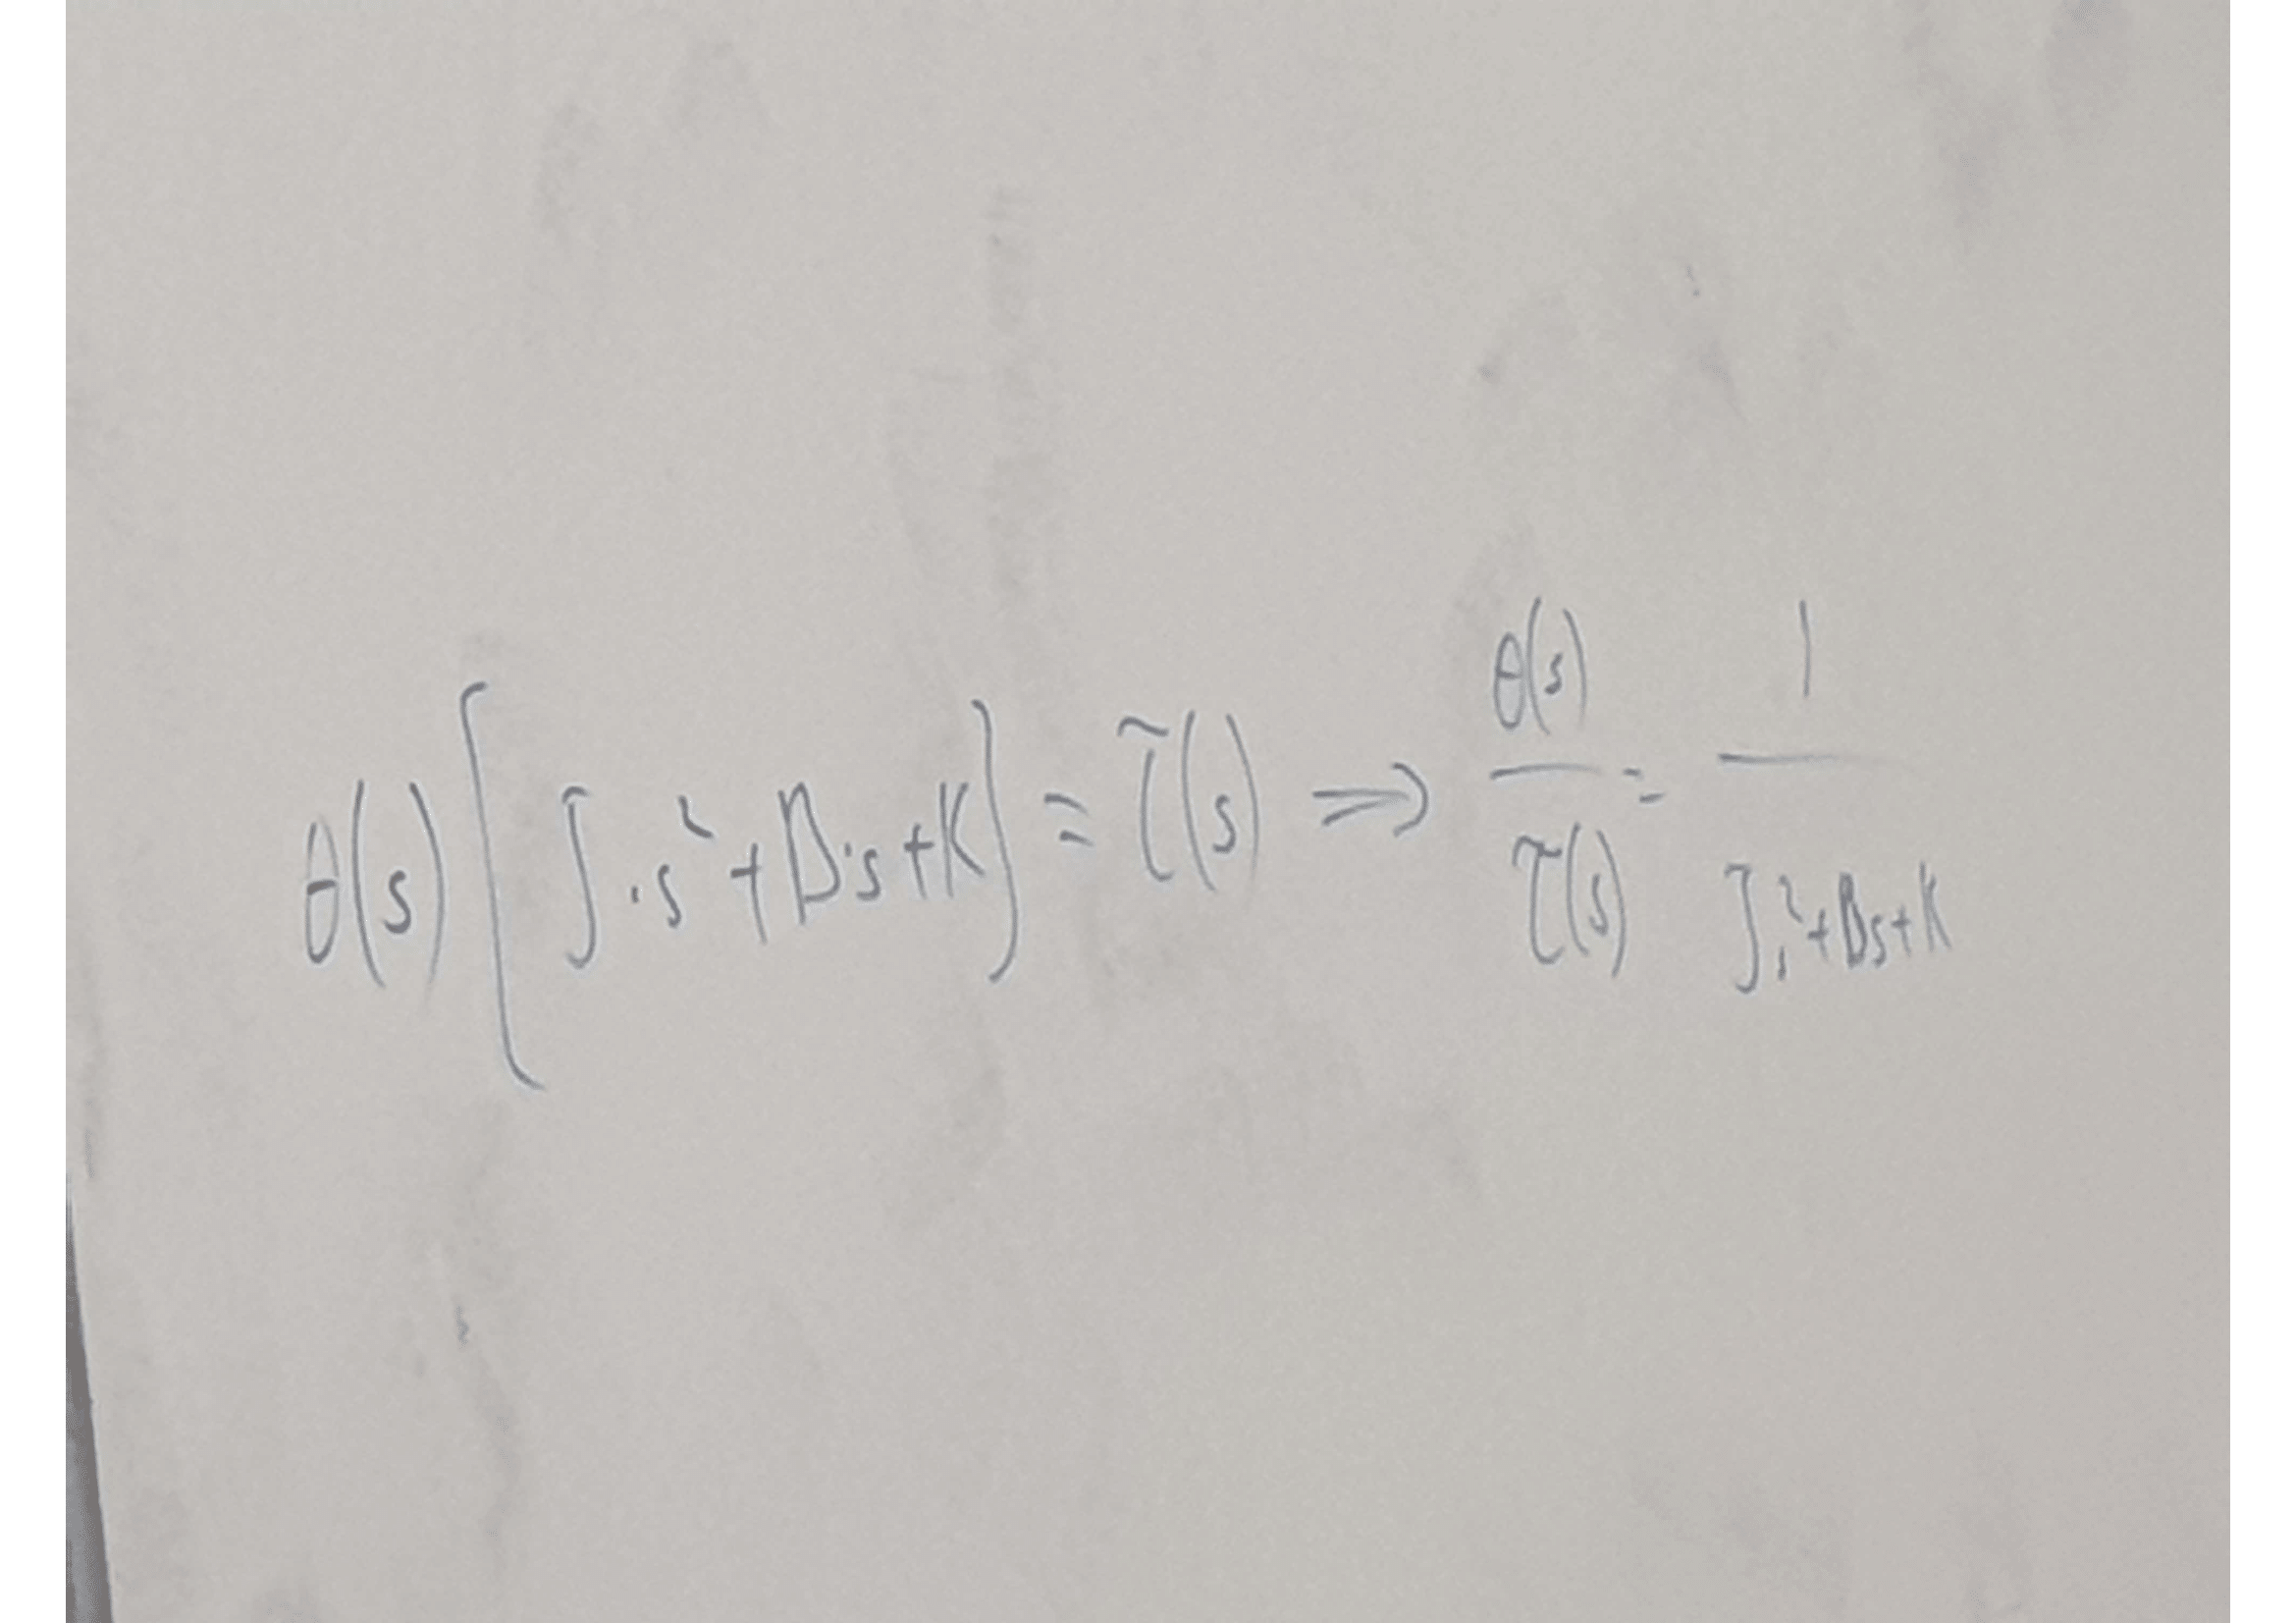 θ(s) [ J·s² + B·s + K ] = τ(s) ⇒ θ(s)/τ(s) = 1/(Js² + Bs + K)